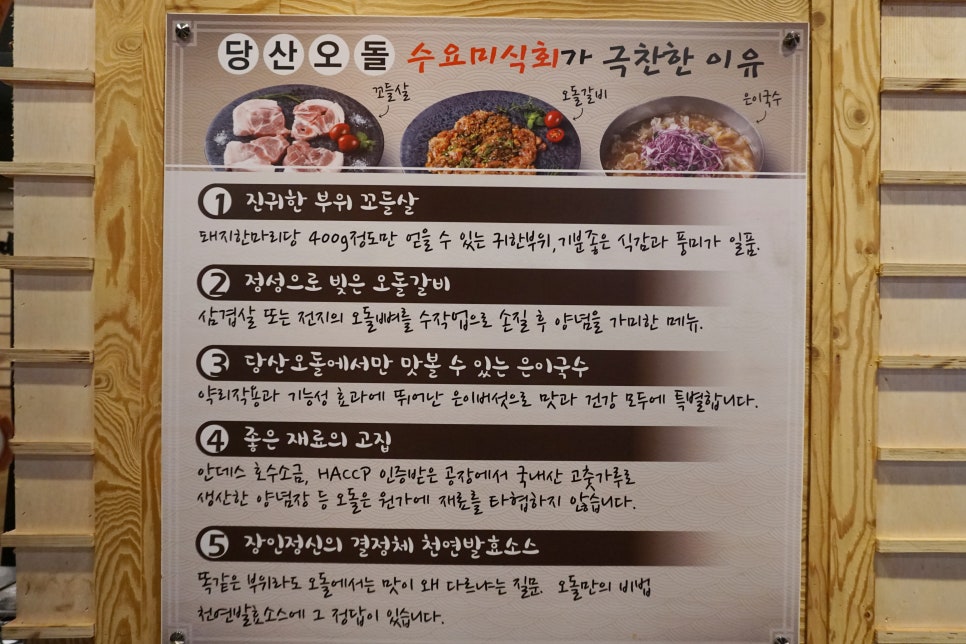 당산오돌 수요미식회가 극찬한 이유
꼬들살
오돌갈비
은이국수
1 진귀한 부위 꼬들살
돼지한마리당 400g정도만 얻을 수 있는 귀한부위, 기분좋은 식감과 풍미가 일품.
2 정성으로 빚은 오돌갈비
삼겹살 또는 전지의 오돌뼈를 수작업으로 손질 후 양념을 가미한 메뉴.
3 당산오돌에서만 맛볼 수 있는 은이국수
약리작용과 기능성 효과에 뛰어난 은이버섯으로 맛과 건강 모두에 특별합니다.
4 좋은 재료의 고집
안데스 호수소금, HACCP 인증받은 공장에서 국내산 고춧가루로
생산한 양념장 등 오돌은 원가에 재료를 타협하지 않습니다.
5 장인정신의 결정체 천연발효소스
똑같은 부위라도 오돌에서는 맛이 왜 다르냐는 질문. 오돌만의 비법
천연발효소스에 그 정답이 있습니다.